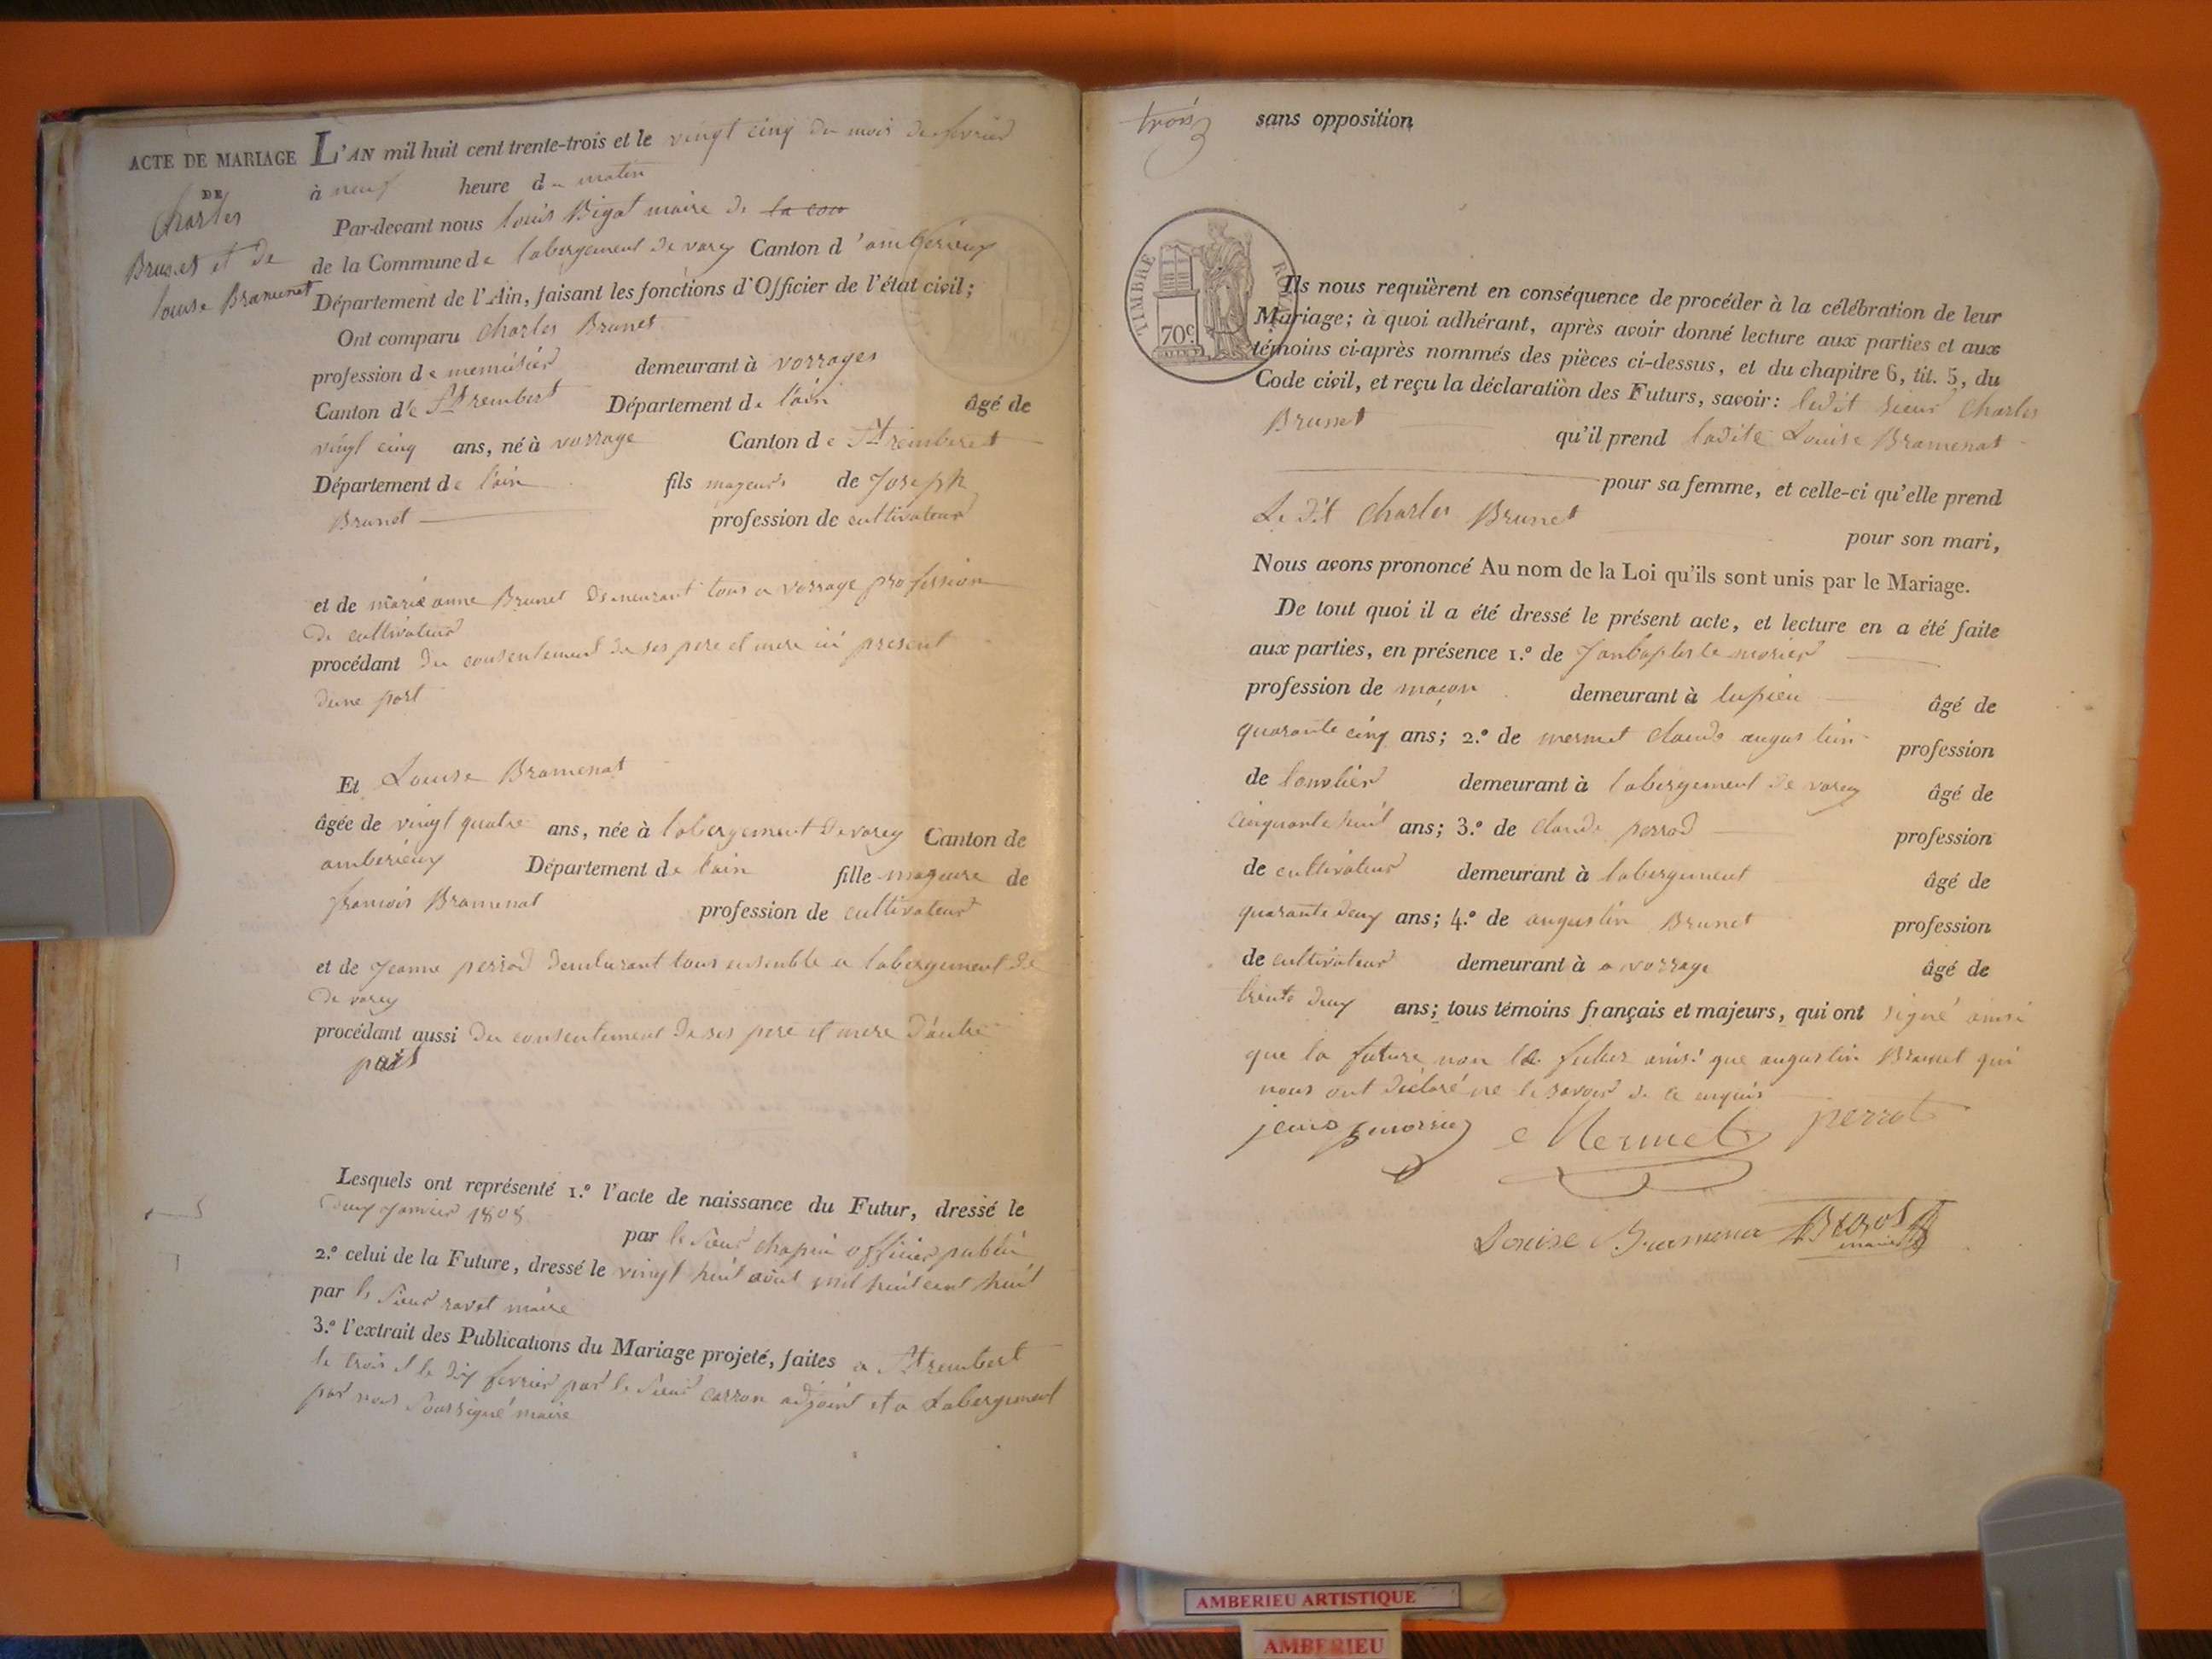 ACTE DE MARIAGE
DE
Charles
Brunet et de
louise Bramenat
L'AN mil huit cent trente-trois et le vingt cinq du mois de fevrier
à neuf heure du matin
Par-devant nous louis Bigot maire de la com
de la Commune de labergement de varey Canton d'amberieux
Département de l'Ain, faisant les fonctions d'Officier de l'état civil;
Ont comparu Charles Brunet
profession de menuisier demeurant à vorrages
Canton de St rembert Département de l'ain âgé de
vingt cinq ans, né à vorrage Canton de St rembert
Département de l'ain fils majeur de Joseph
Brunet profession de cultivateur
et de marie anne Brunet demeurant tous a vorrage profession
de cultivateur
procédant du consentement de ses pere et mere ici present
dune part
Et Louise Bramenat
âgée de vingt quatre ans, née à labergement de varey Canton de
amberieux Département de l'ain fille mageure de
francois Bramenat profession de cultivateur
et de Jeanne perrod demeurant tous ensemble a labergement de
de varey
procédant aussi du consentement de ses pere et mere d'autre
part
Lesquels ont représenté 1.º l'acte de naissance du Futur, dressé le
deux janvier 1808 par le sieur chapin officier public
2.º celui de la Future, dressé le vingt huit aout mil huit cent huit
par le sieur ravet maire
3.º l'extrait des Publications du Mariage projeté, faites a St rembert
le trois et le dix fevrier par le sieur carron adjoint et a Labergement
par nous soussigné maire
trois
sans opposition
TIMBRE ROYAL
70c.
Ils nous requièrent en conséquence de procéder à la célébration de leur
Mariage; à quoi adhérant, après avoir donné lecture aux parties et aux
témoins ci-après nommés des pièces ci-dessus, et du chapitre 6, tit. 5, du
Code civil, et reçu la déclaration des Futurs, savoir: ledit sieur Charles
Brunet qu'il prend ladite Louise Bramenat
pour sa femme, et celle-ci qu'elle prend
Le dit Charles Brunet
pour son mari,
Nous avons prononcé Au nom de la Loi qu'ils sont unis par le Mariage.
De tout quoi il a été dressé le présent acte, et lecture en a été faite
aux parties, en présence 1.º de Janbaptiste morier
profession de maçon demeurant à lupieu âgé de
quarante cinq ans; 2.º de mermet claude augustin profession
de demeurant à labergement de varey âgé de
cinquante huit ans; 3.º de claude perrod profession
de cultivateur demeurant à labergement âgé de
quarante deux ans; 4.º de augustin Brunet profession
de cultivateur demeurant à a vorrage âgé de
trente deux ans; tous témoins français et majeurs, qui ont signé ainsi
que la future non le futur ainsi que augustin Brunet qui
nous ont déclaré ne le savoir de ce enquis
Mermet perrot
Louise Bramena Bigot
maire
AMBERIEU ARTISTIQUE
AMBERIEU